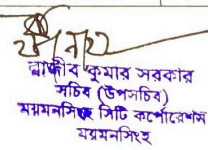 রাজীব কুমার সরকার
সচিব (উপসচিব)
ময়মনসিংহ সিটি কর্পোরেশন
ময়মনসিংহ